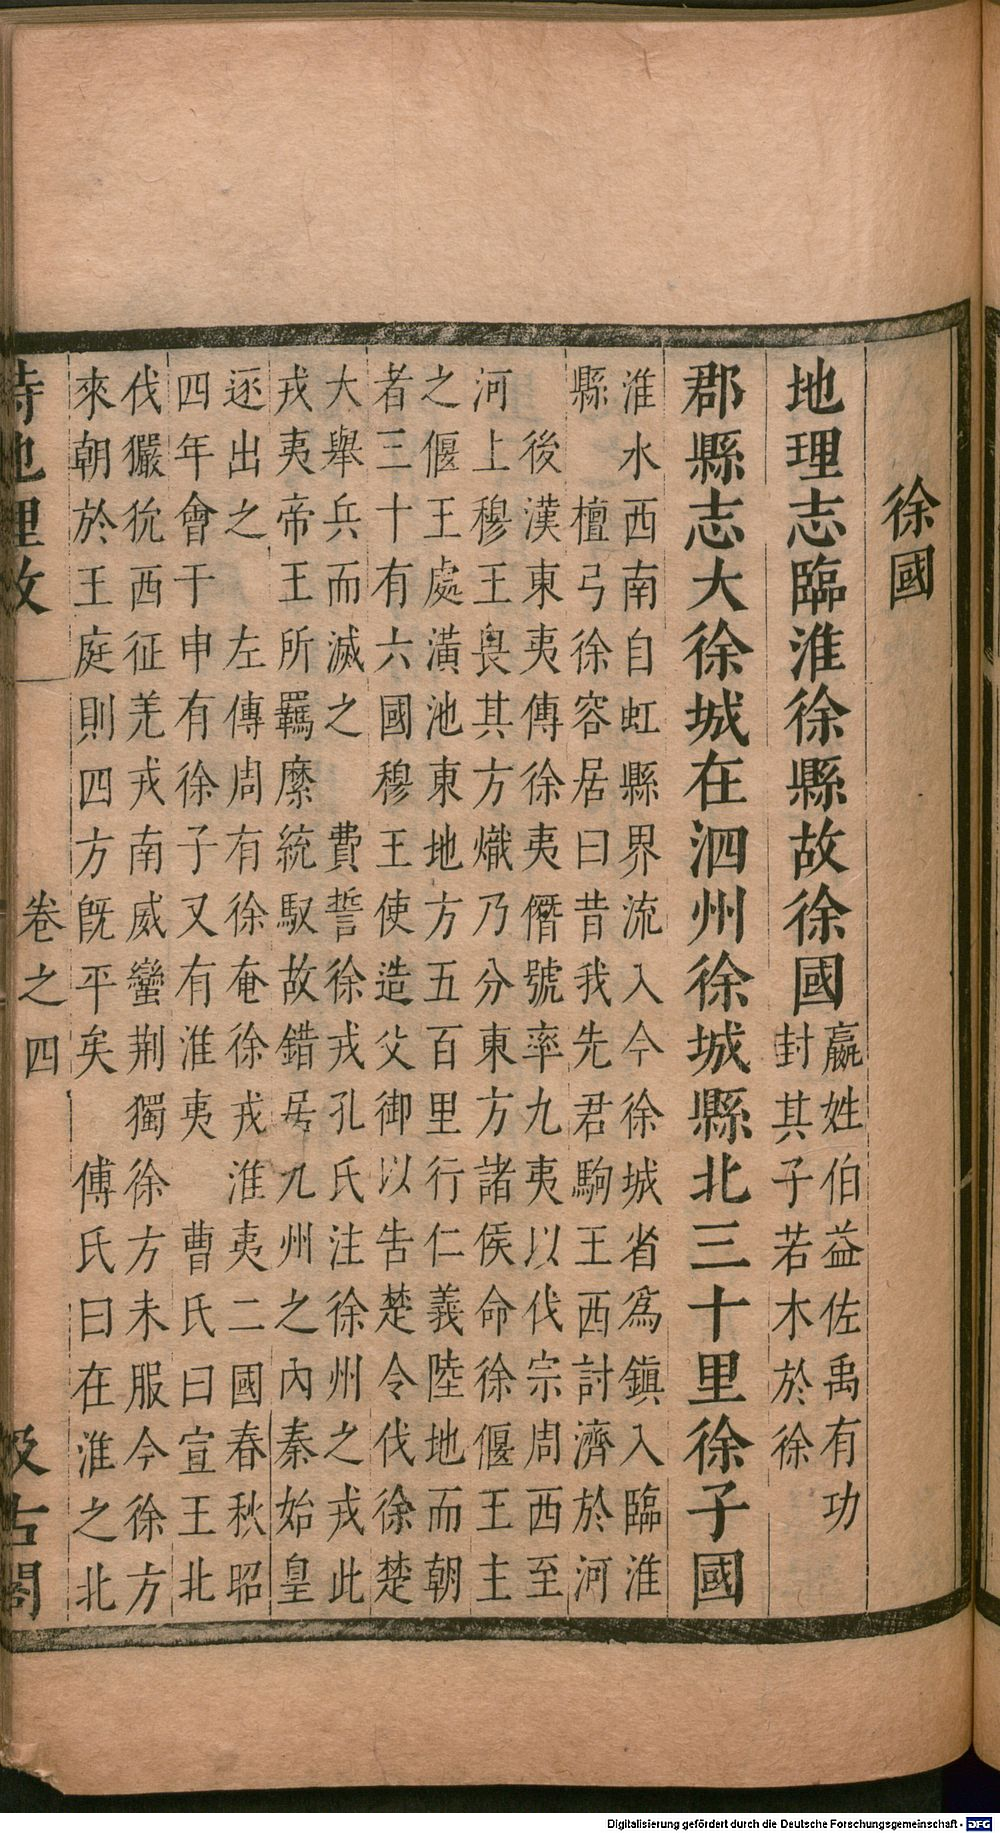 徐國
地理志臨淮徐縣故徐國
嬴姓伯益佐禹有功
封其子若木於徐
郡縣志大徐城在泗州徐城縣北三十里徐子國
淮水西南自虹縣界流入今徐城省爲鎮入臨淮
縣　檀弓徐容居曰昔我先君駒王西討濟於河
後漢東夷傳徐夷僭號率九夷以伐宗周西至
河上穆王畏其方熾乃分東方諸侯命徐偃王主
之偃王處潢池東地方五百里行仁義陸地而朝
者三十有六國穆王使造父御以告楚令伐徐楚
大舉兵而滅之　費誓徐戎孔氏注徐州之戎此
戎夷帝王所羈縻統馭故錯居九州之內秦始皇
逐出之　左傳周有徐奄徐戎淮夷二國春秋昭
四年會于申有徐子又有淮夷　曹氏曰宣王北
伐玁狁西征羌戎南威蠻荆獨徐方未服今徐方
來朝於王庭則四方旣平矣　傅氏曰在淮之北
詩地理攷
卷之四
汲古閣
Digitalisierung gefördert durch die Deutsche Forschungsgemeinschaft - DFG